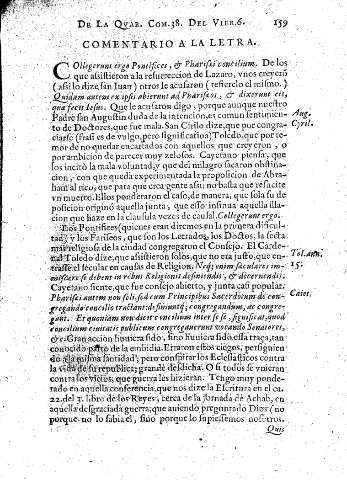 DE LA QVAR. COM.38. DEL VIER.6. 159
COMENTARIO A LA LETRA.
Collegerunt ergo Pontifices, & Pharisei concilium. De los
que assistieron a la resurreccion de Lazaro, vnos creyerõ
(assi lo dize san Iuan) otros le acusaron (refierelo el mismo.)
Quidam autem ex ipsis abierunt ad Phariseos, & dixerunt eis,
qua fecit Iesus. Que le acusaron digo, porque aunque nuestro
Padre san Augustin duda de la intencion, es comun sentimien-
to de Doctores, que fue mala. San Cirilo dize, que por congra-
ciarse (frasi es de vulgo, pero significatiua) Toledo, que por te-
mor de no quedar encartados con aquellos que creyeron, o
por ambicion de parecer muy zelosos. Cayetano piensa, que
los incitò la mala voluntad, y que del milagro sacaron obstina-
cion, con que queda experimentada la proposicion de Abra-
ham al rico, que para que crea gente assi no basta que resucite
vn muerto. Ellos ponderaron el caso, de manera, que sola su de-
posicion originò aquella junta, que esso insinua aquella illa-
cion que haze en la clausula vezes de causal. Collegerunt ergo.
Los Pontifices (quienes eran diremos en la primera dificul-
tad) y los Fariseos, que son los Letrados, los Doctos, la secta
mas religiosa de la ciudad congregaron el Consejo. El Carde-
nal Toledo dize, que assistieron solos, que no era justo, que en-
trasse el secular en causas de Religion. Neq; enim seculares im-
miscere se debent in rebus Religionis definiendis, & discernendis.
Cayetano siente, que fue consejo abierto, y junta casi popular.
Pharisei autem non soli, sed cum Principibus Sacerdotum de con-
gregando concilio tractant: definiuntq; congregandum, ac congre-
gant. Et quoniam non dicit concilium inter se, significat, quod
concilium ciuitatis publicum congregauerunt vocando Senatores,
&c. Gran accion huuiera sido, sino huuiera sido essa traça, tan
conocido parto de la embidia. Erraron estos ciegos, persiguien-
do a la misma santidad, pero consultar los Eclesiasticos contra
la vida de su republica; grande desdicha. O si todos se vnieran
contra los vicios, que guerra les hizieran. Tengo muy ponde-
rado en aquella conferencia, que nos dize la Escritura en el ca.
22. del 3. libro de los Reyes, cerca de la jornada de Achab, en
aquella desgraciada guerra, que auiendo preguntado Dios (no
porque no lo sabia el, sino porque lo supiessemos nosotros.
Quis
Aug.
Cyril.
Tol. ann.
15.
Caiet.